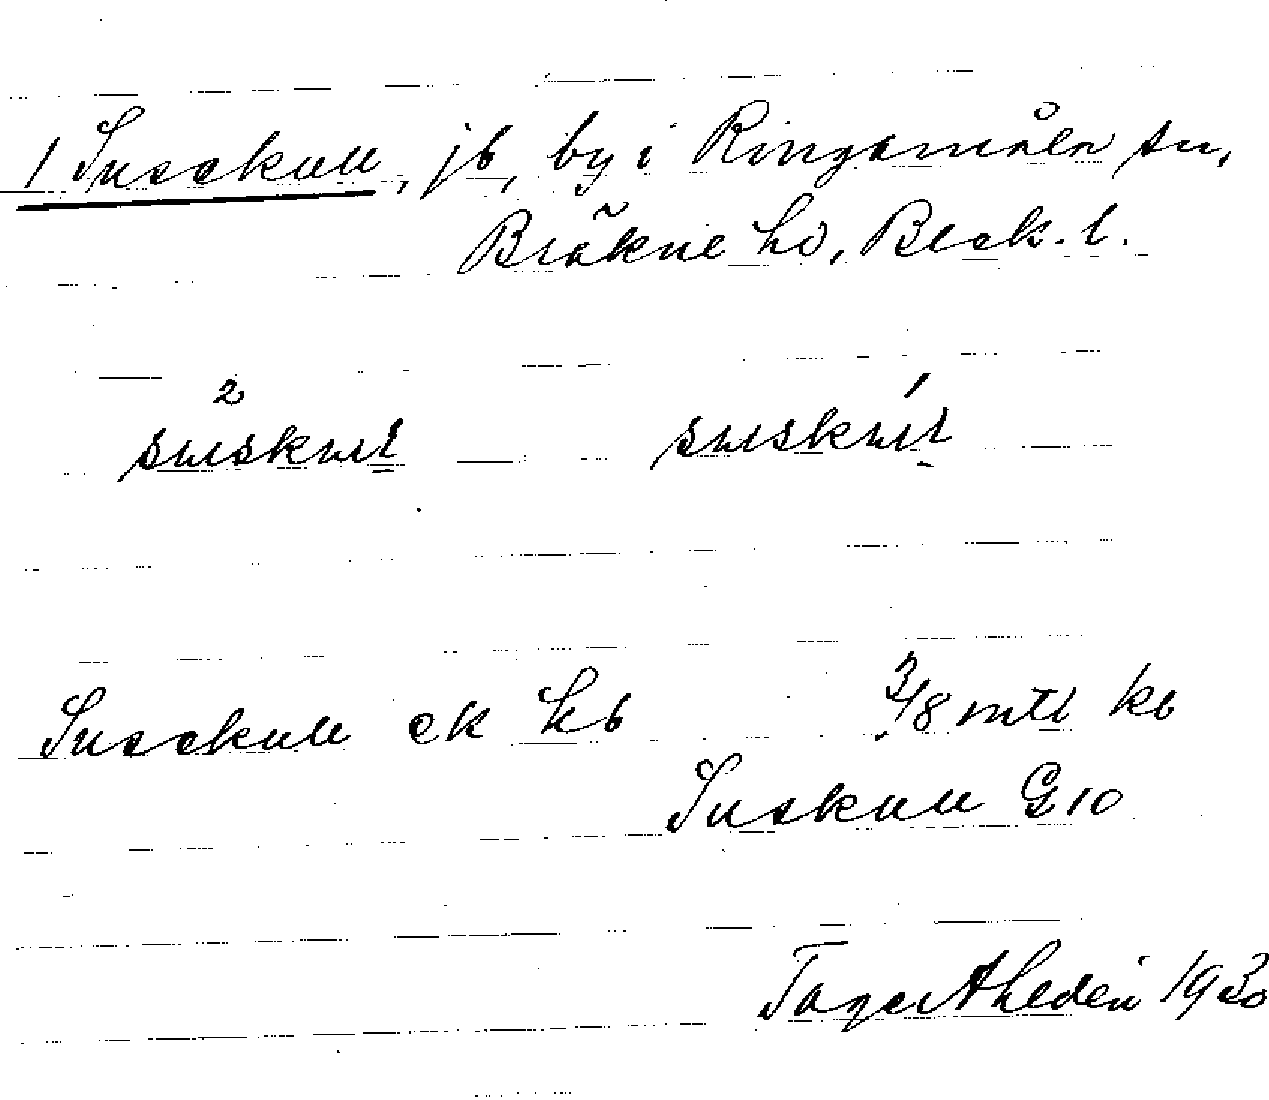 1 Susekull, jb, by i Ringamåla sn,
Bräkne hd, Blek. l.
2 1
suskul suskúl
Susekull ek kb 3/8 mtl kb
Suskull G10
Tage Ahldén 1930